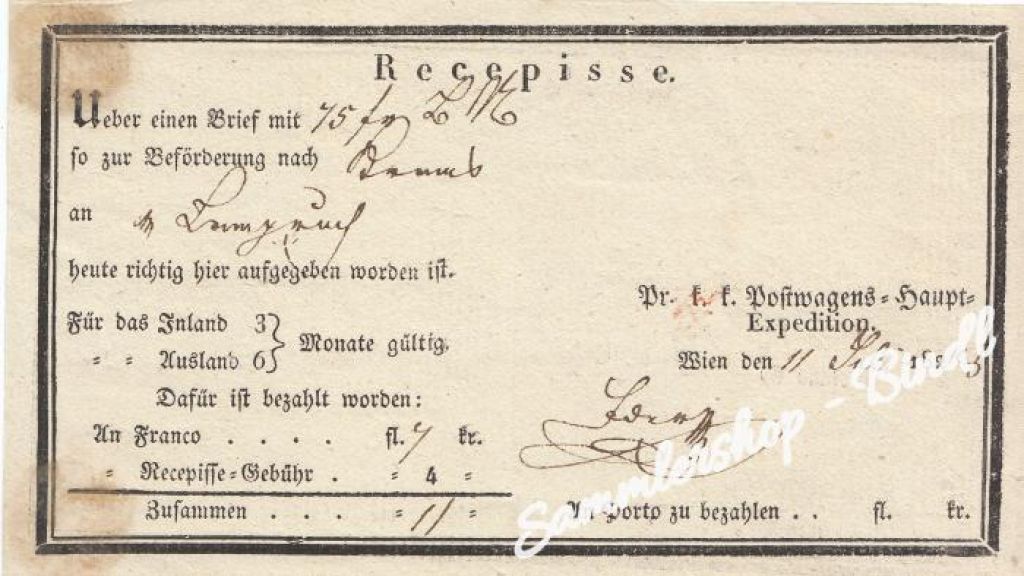 Recepisse.
Ueber einen Brief mit 75 fr B M
so zur Beförderung nach Krems
an
heute richtig hier aufgegeben worden ist.
Für das Inland 3 } Monate gültig.
" " Ausland 6
Dafür ist bezahlt worden:
An Franco . . . . fl. 7 kr.
" Recepisse-Gebühr . " 4 "
Zusammen . . . " 11 "
Pr. k. k. Postwagens-Haupt-
Expedition.
Wien den 11
An Porto zu bezahlen . . fl. kr.
Sammlershop - Bindl